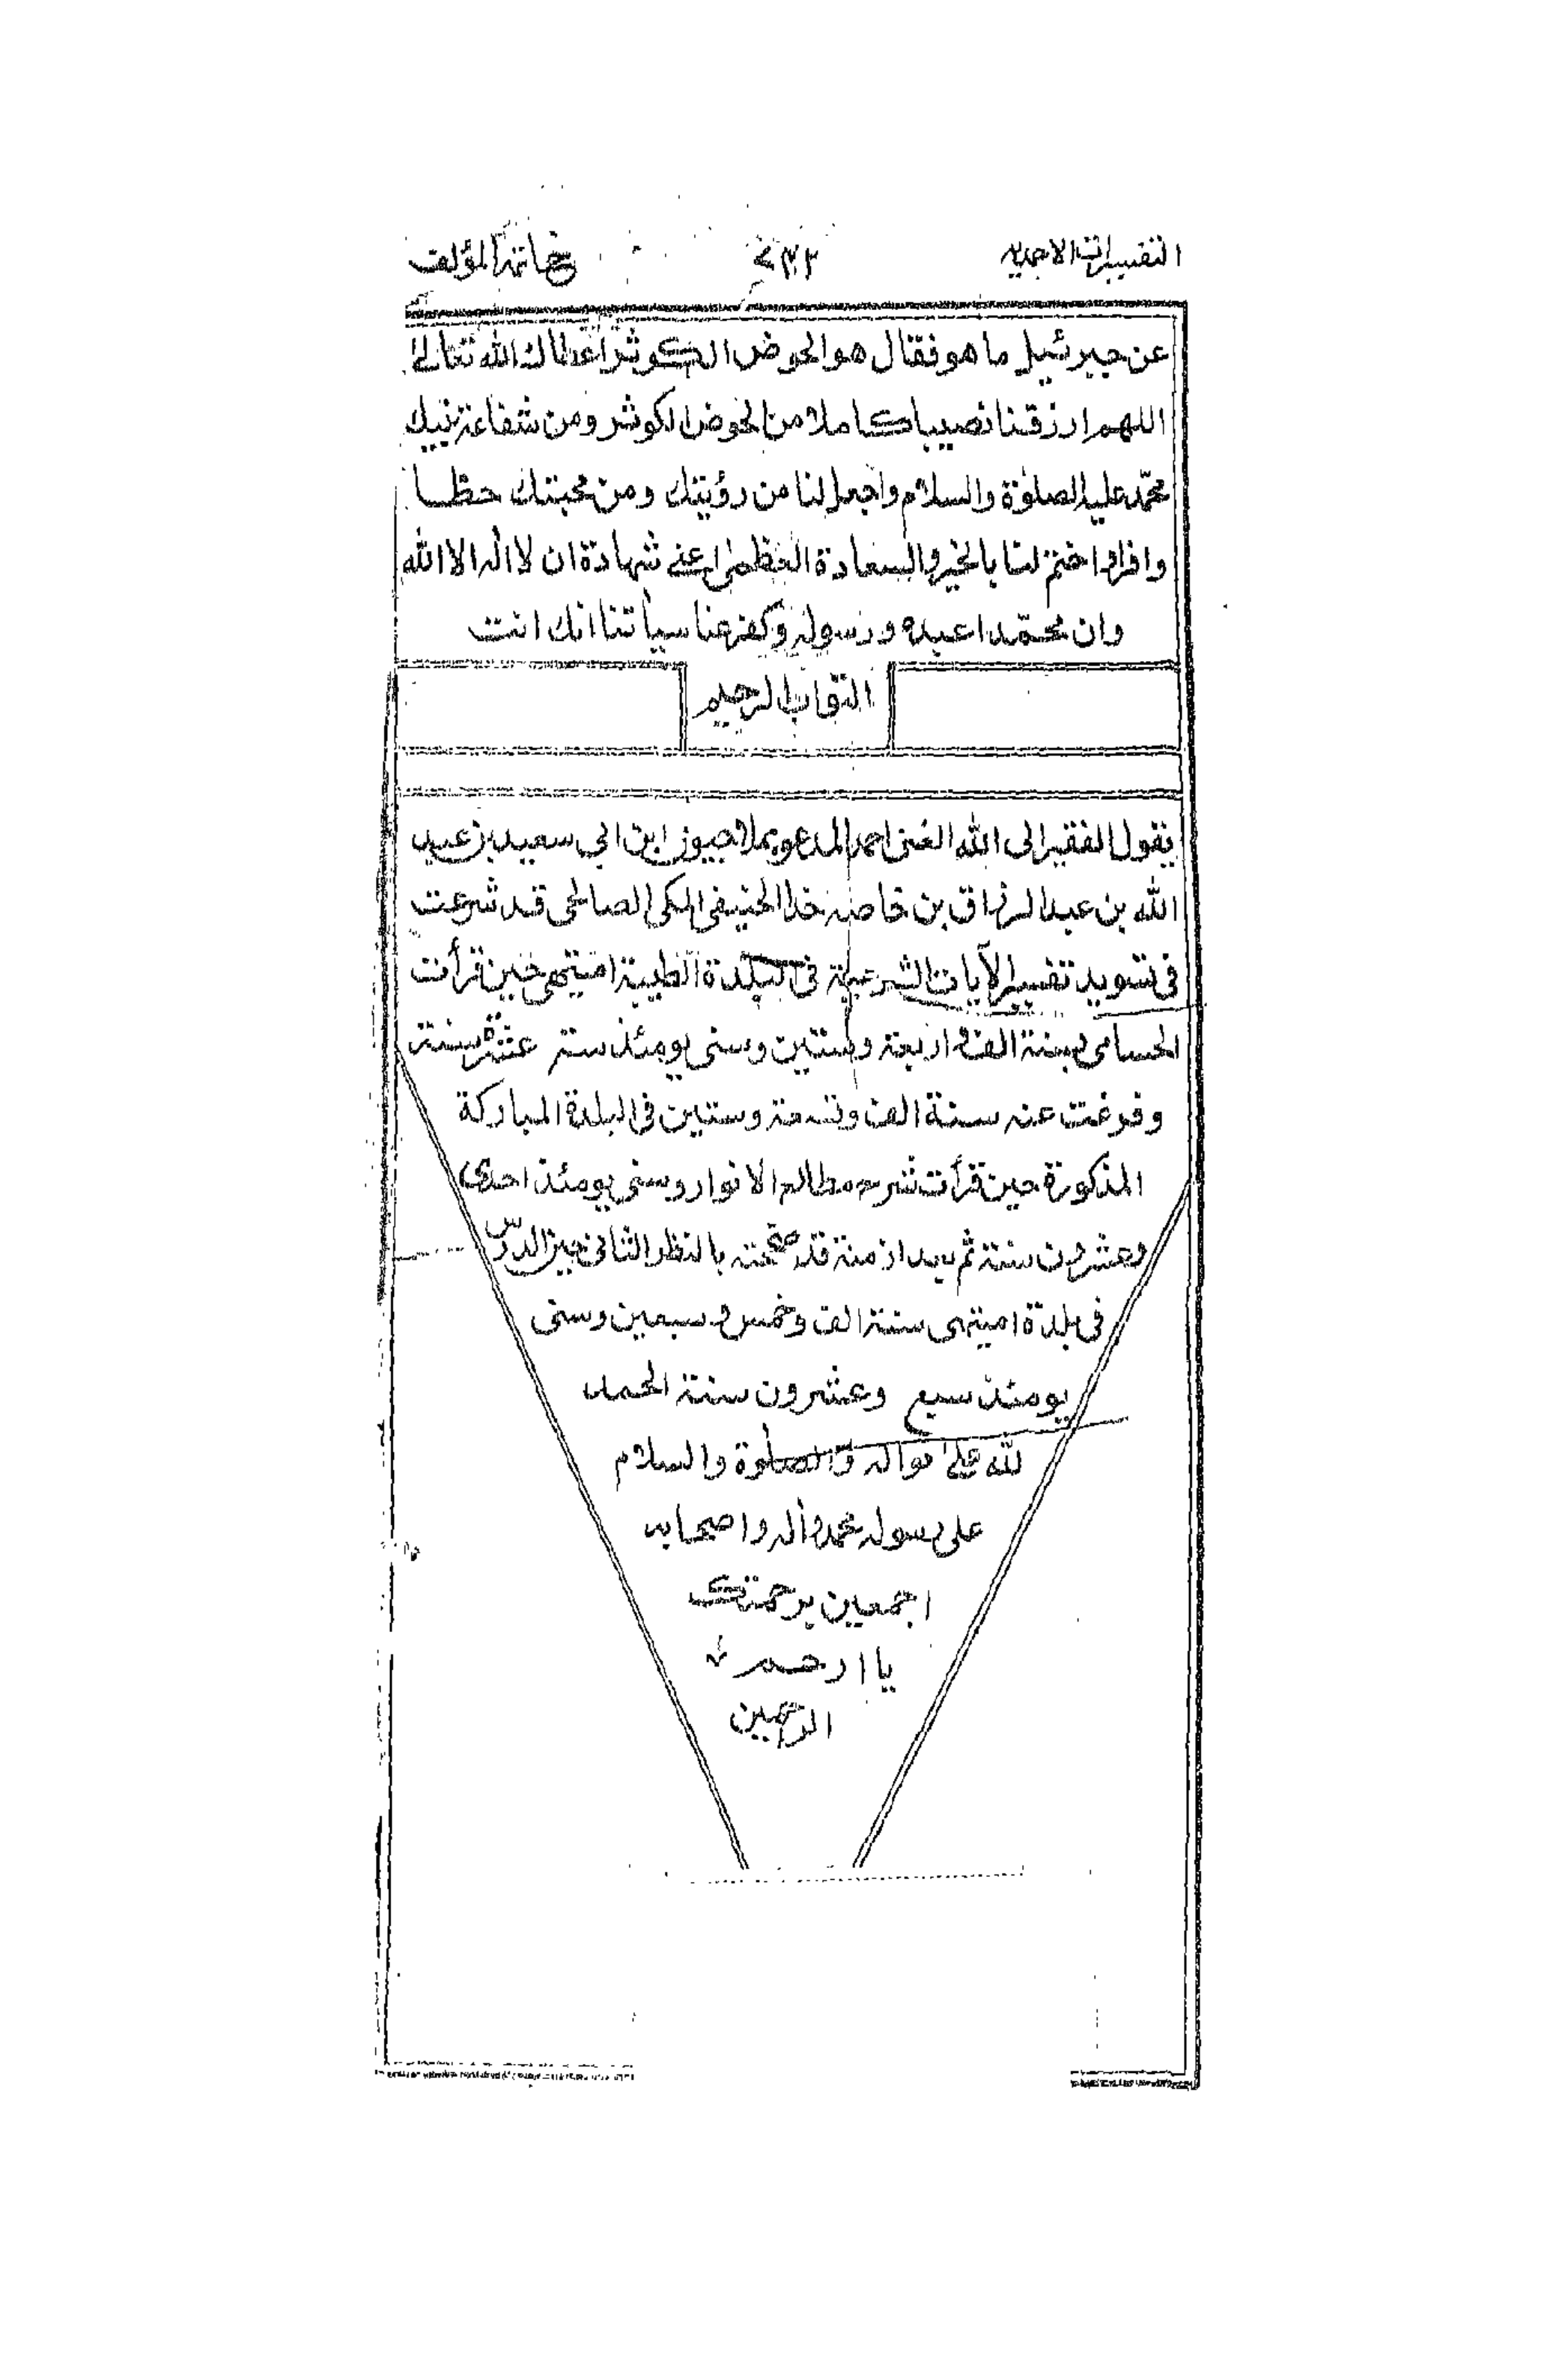 التفسيرات الاحمدية ٧٣٢ خاتمة المؤلف
عن جبرئيل ما هو فقال هو الحوض الكوثر اعطاك الله تعالى
اللهم ارزقنا نصيبا كاملا من الحوض الكوثر ومن شفاعة نبيك
محمّد عليه الصلوٰة والسلام واجعل لنا من رؤيتك ومن محبتك حظا
وافرا واختم لنا بالخير والسعادة العظمىٰ اعنى شهادة ان لا اله الا الله
وان محمّدا عبده ورسوله وكفر عنا سيأتنا انك انت
التواب الرحيم
يقول الفقير الى الله الغنى احمد المدعو بملا جيون ابن ابى سعيد بن عبيد
الله بن عبد الرزاق بن خاصه خدا الحنيفى المكى الصالحى قد شرعت
فى تسويد تفسير الآيات الشرعية فى البلدة الطيبة اميتهى حين قرأت
الحسامى بسنة الف و اربعة وستين وسنى يومئذ ستة عشرة سنة
وفرغت عنه سنة الف وتسعة وستين فى البلدة المباركة
المذكورة حين قرأت شرح مطالع الانوار وسنى يومئذ احدى
وعشرون سنة ثم بعد ازمنة قد صححته بالنظر الثانى حين الدرس
فى بلدة اميتهى سنة الف وخمس و سبعين وسنى
يومئذ سبع وعشرون سنة الحمد
لله علىٰ نواله والصلوٰة والسلام
على رسوله محمد واٰله واصحابه
اجمعين برحمتك
يا ارحم
الراحمين